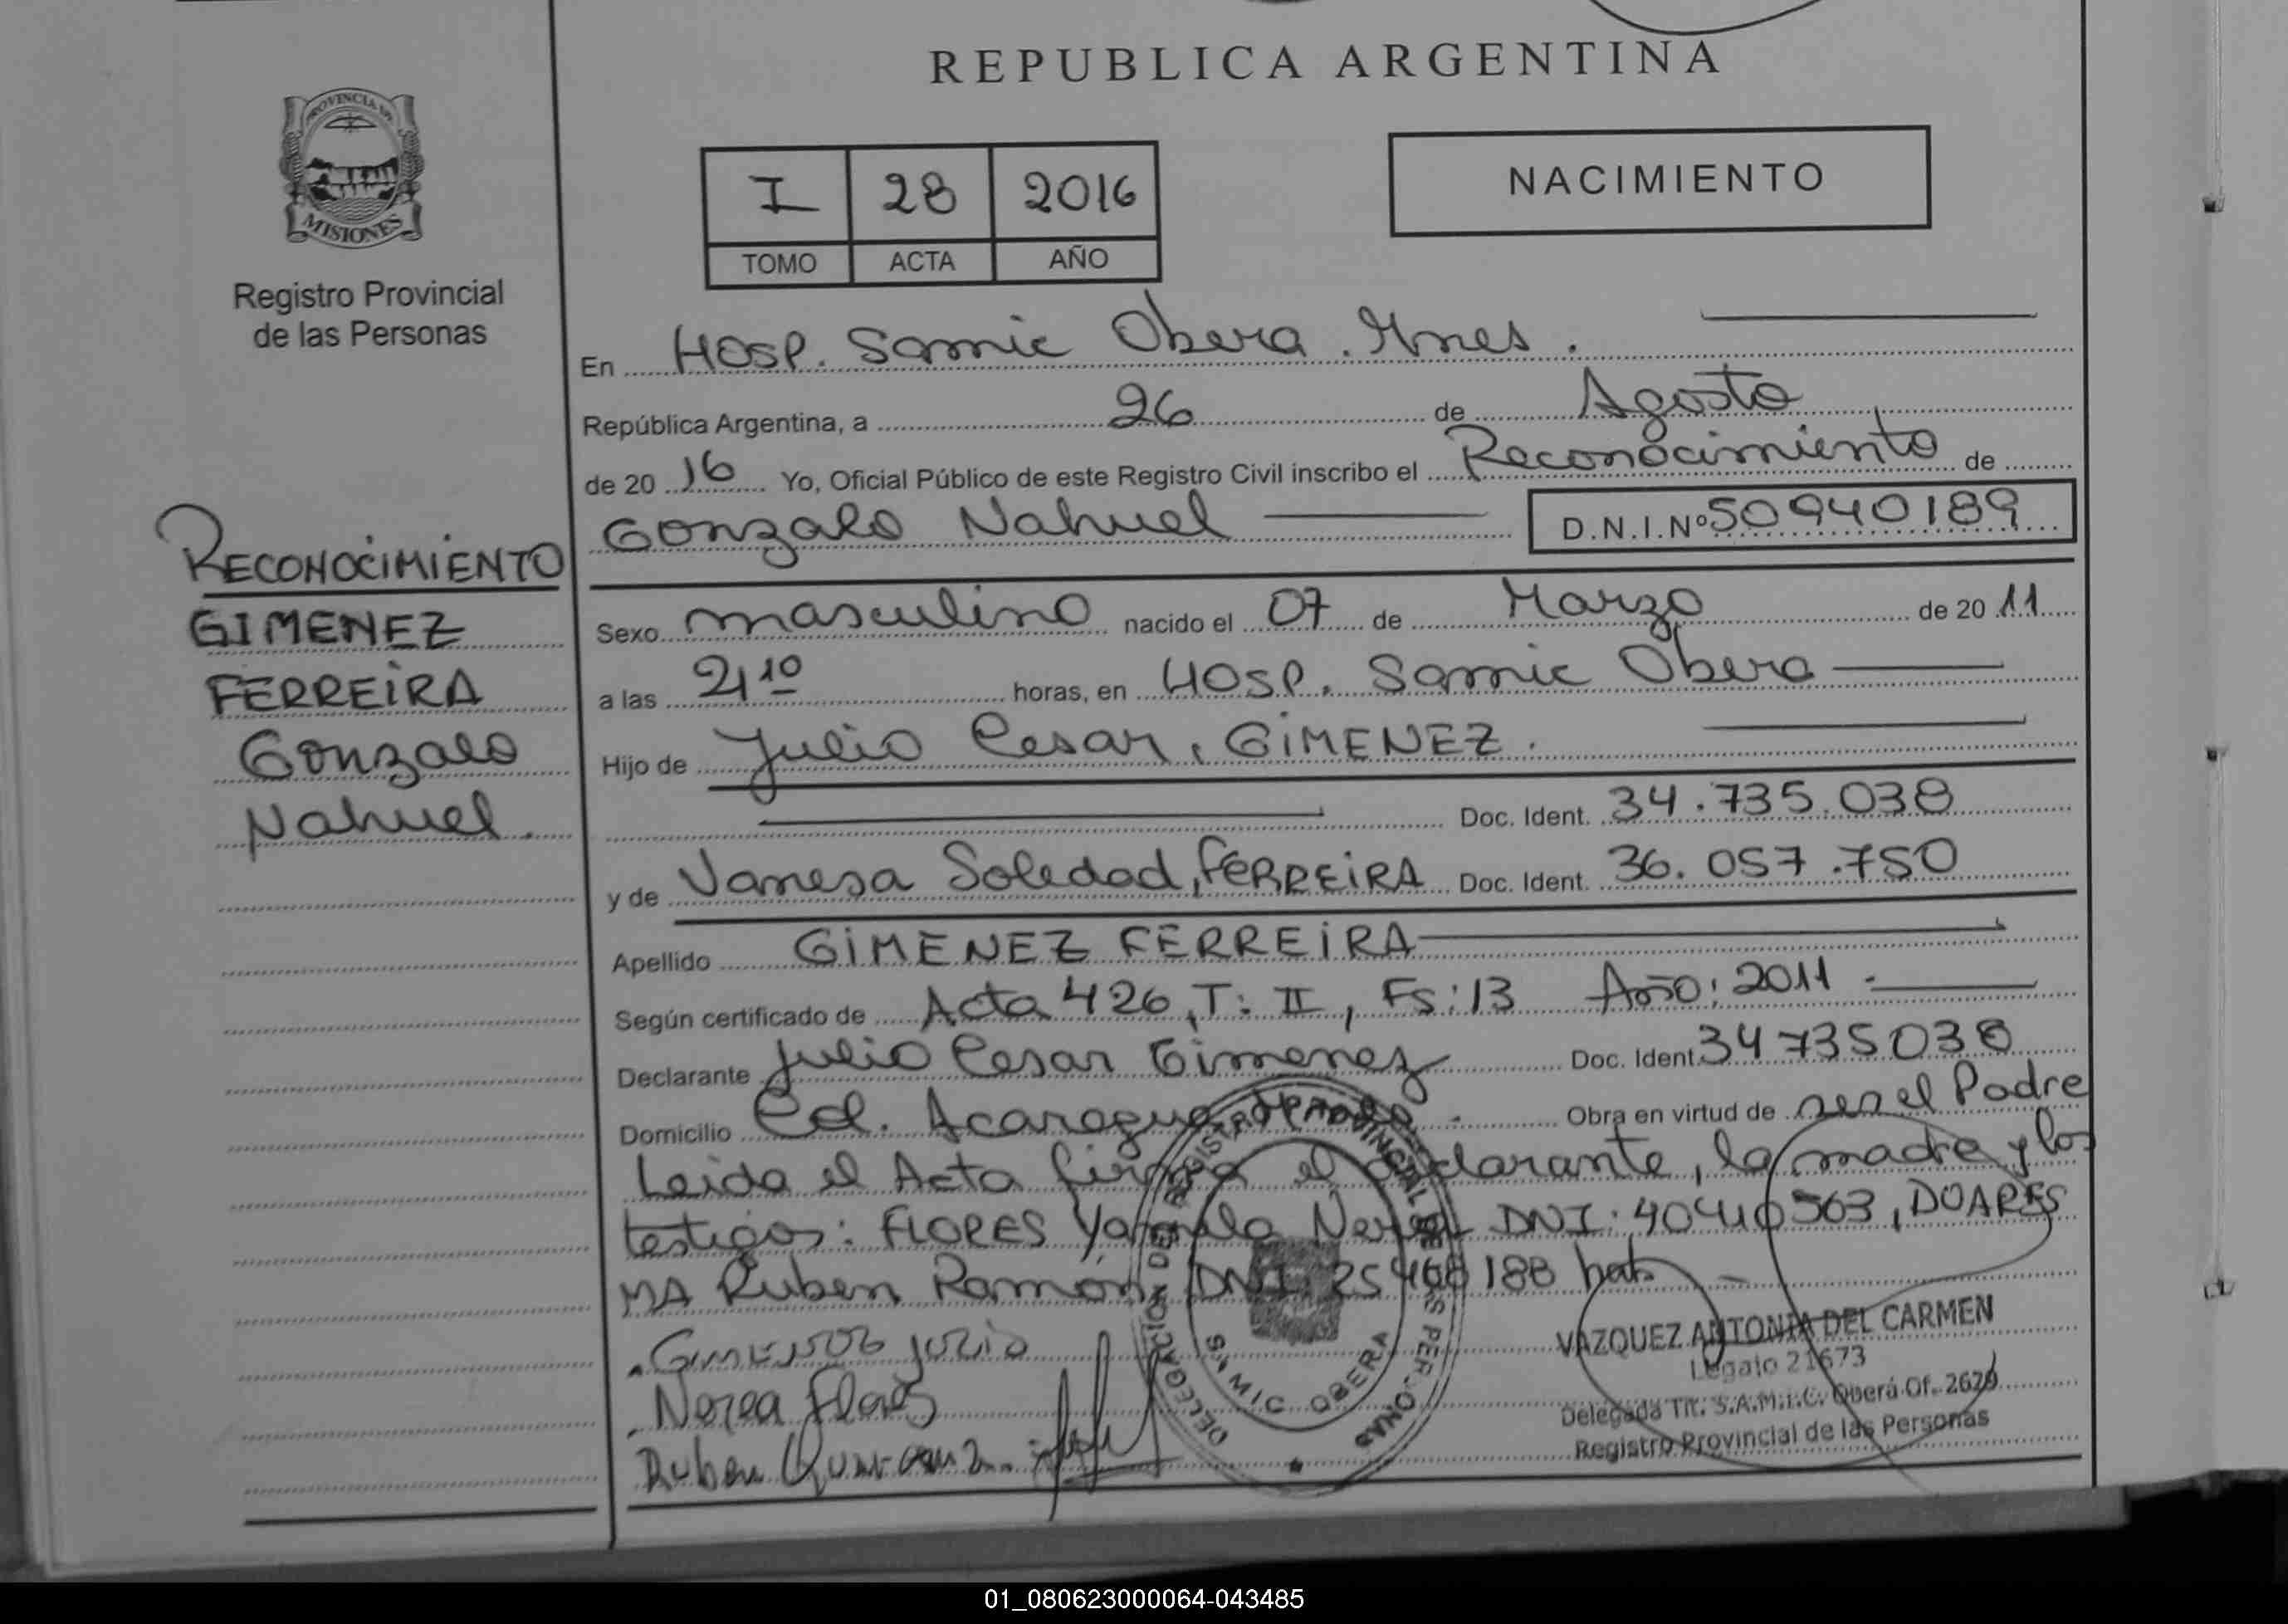 REPUBLICA ARGENTINA
PROVINCIA DE
MISIONES
Registro Provincial
de las Personas
I 28 2016
TOMO ACTA AÑO
NACIMIENTO
En Hosp. Samic Obera. Mnes.
República Argentina, a 26 de Agosto
de 2016 Yo, Oficial Público de este Registro Civil inscribo el Reconocimiento de
Gonzalo Nahuel D.N.I.Nº 50940189
RECONOCIMIENTO
GIMENEZ
FERREIRA
Gonzalo
Nahuel.
Sexo masculino nacido el 07 de Marzo de 2011
a las 21 10 horas, en Hosp. Samic Obera
Hijo de Julio Cesar, GIMENEZ.
Doc. Ident. 34.735.038
y de Vanesa Soledad, FERREIRA Doc. Ident. 36.057.750
Apellido GIMENEZ FERREIRA
Según certificado de Acta 426, T: II, Fs: 13 Año: 2011.
Declarante Julio Cesar Gimenez Doc. Ident. 34735038
Domicilio Col. Acaragua Obra en virtud de ser el Padre
Leida el Acta firma el declarante, la madre y los
testigos: FLORES DNI: 40410563,
Ruben Ramon, DNI 25468188
Julio
Nerea Flores
Ruben
DELEGACION DEL REGISTRO PROVINCIAL DE LAS PERSONAS
SAMIC OBERA
VAZQUEZ ANTONIA DEL CARMEN
Legajo 21673
Delegada Tit. S.A.M.I.C. Oberá Of. 2629
Registro Provincial de las Personas
01_080623000064-043485